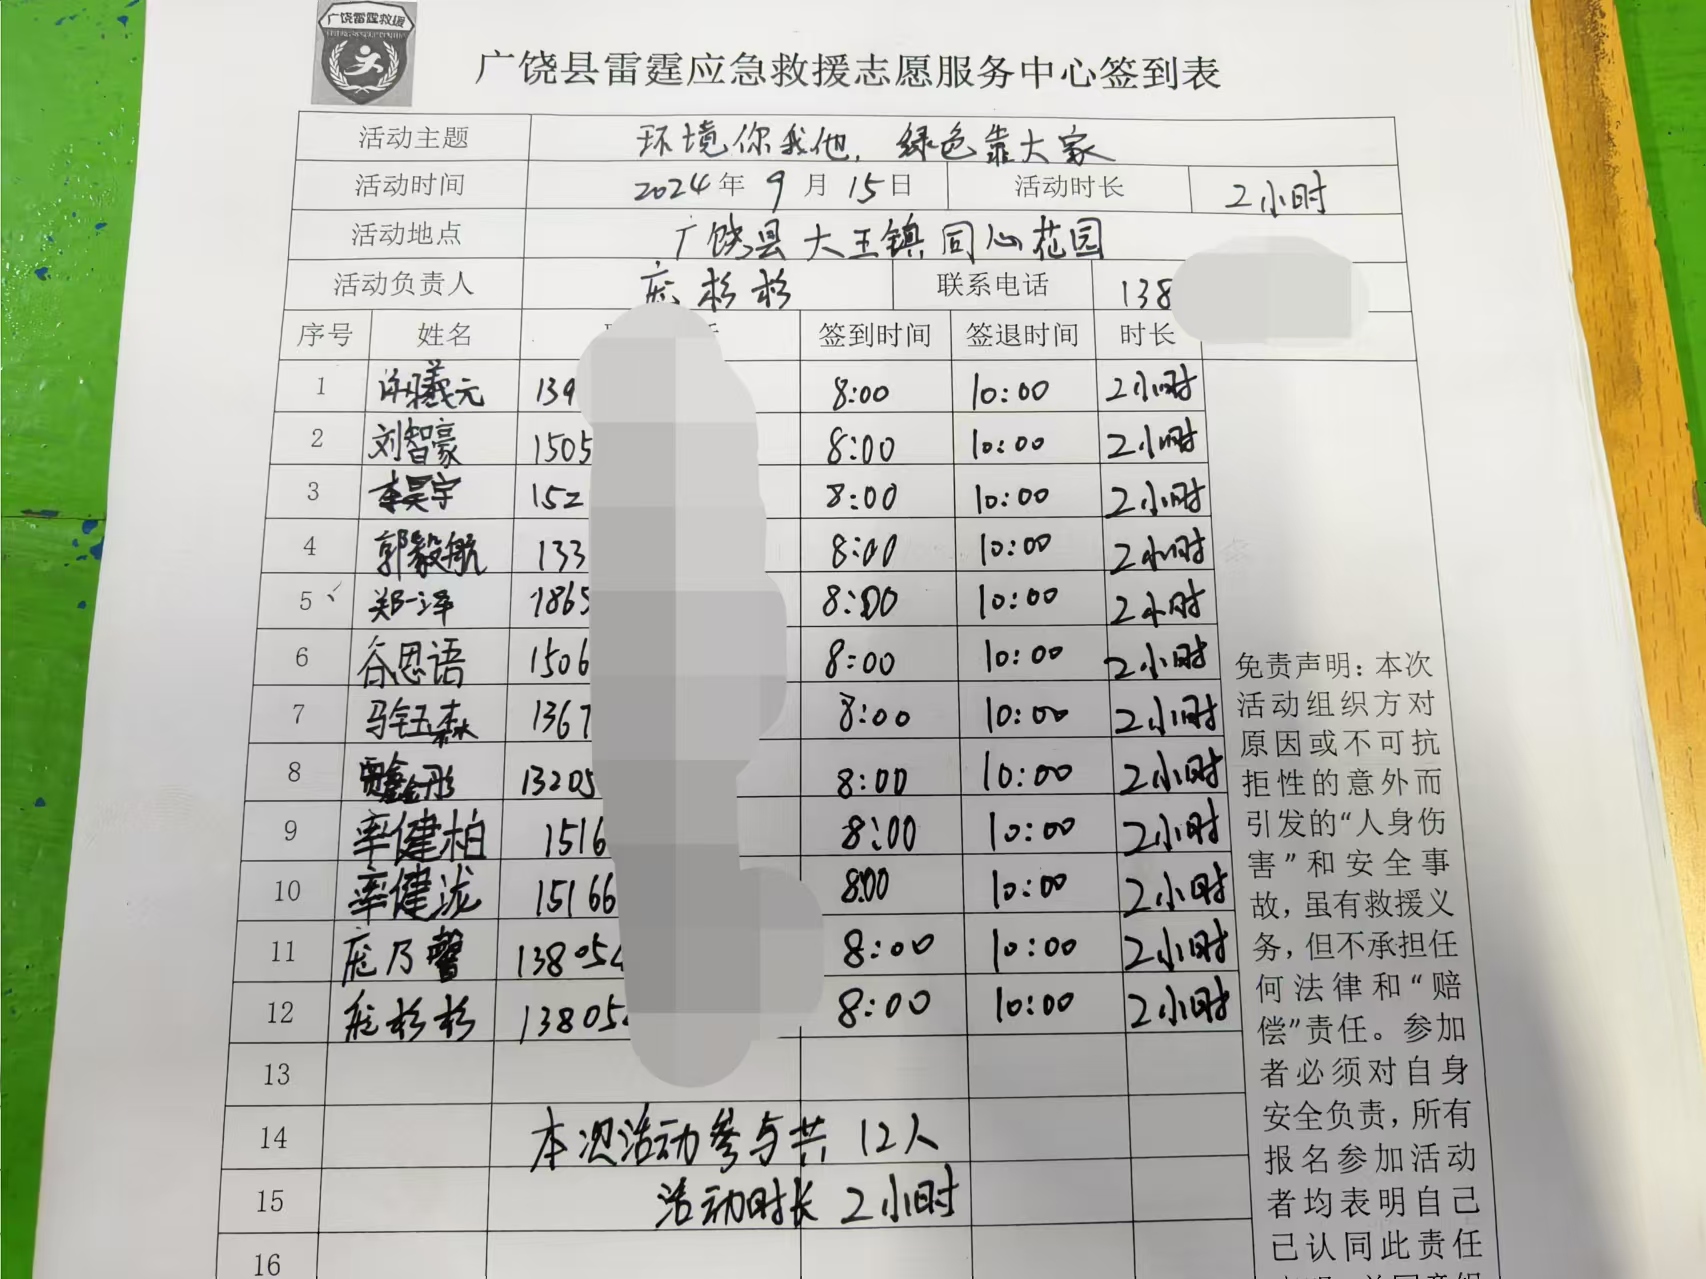 广饶雷霆救援
广饶县雷霆应急救援志愿服务中心签到表
活动主题 环境你我他，绿色靠大家
活动时间 2024年9月15日 活动时长 2小时
活动地点 广饶县大王镇同心花园
活动负责人 庞杉杉 联系电话 138
序号 姓名 签到时间 签退时间 时长
1 许曦元 139 8:00 10:00 2小时
2 刘智豪 1505 8:00 10:00 2小时
3 李昊宇 152 8:00 10:00 2小时
4 郭毅航 133 8:00 10:00 2小时
5 郑一泽 1865 8:00 10:00 2小时
6 谷思语 1506 8:00 10:00 2小时
7 马钰森 1367 8:00 10:00 2小时
8 13205 8:00 10:00 2小时
9 李健柏 1516 8:00 10:00 2小时
10 李健泷 15166 8:00 10:00 2小时
11 庞乃馨 138054 8:00 10:00 2小时
12 庞杉杉 13805 8:00 10:00 2小时
13
14 本次活动参与共12人
15 活动时长2小时
16
免责声明：本次
活动组织方对
原因或不可抗
拒性的意外而
引发的“人身伤
害”和安全事
故，虽有救援义
务，但不承担任
何法律和“赔
偿”责任。参加
者必须对自身
安全负责，所有
报名参加活动
者均表明自己
已认同此责任